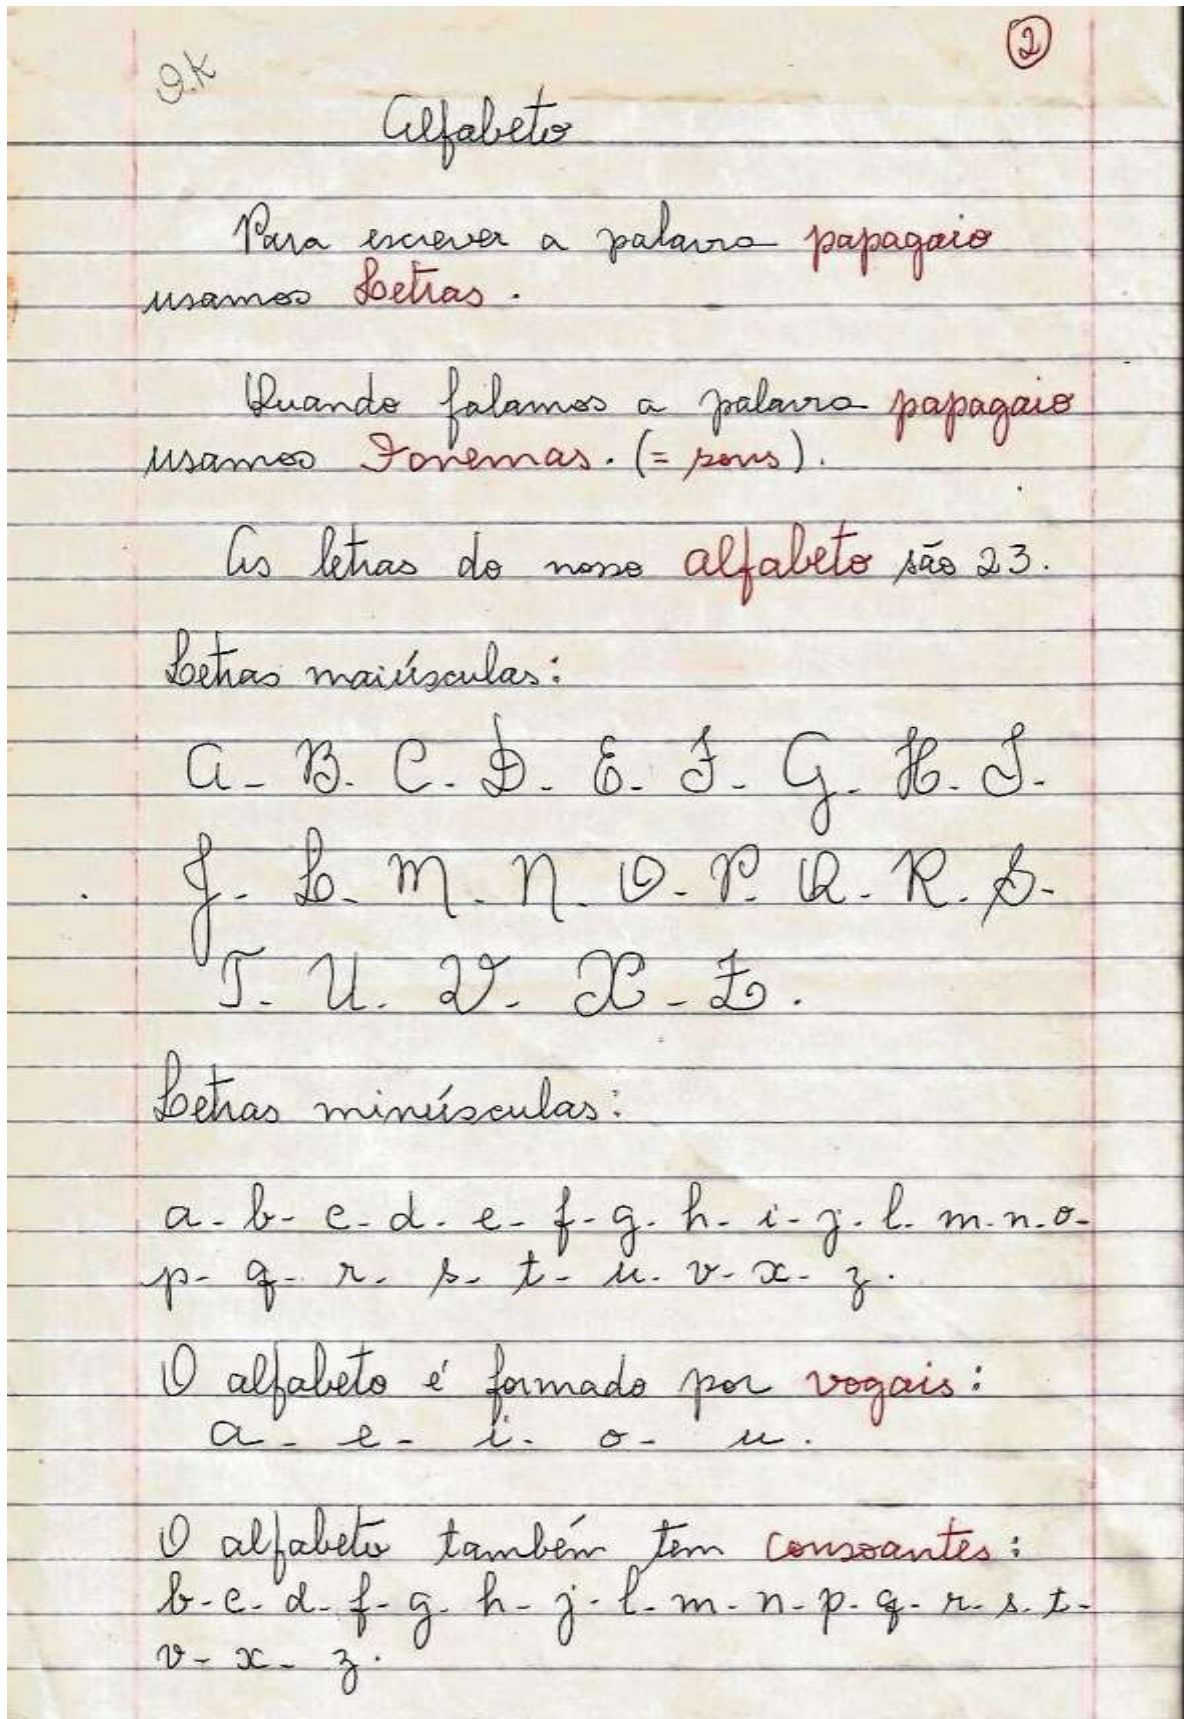 2
O.K
Alfabeto
Para escrever a palavra papagaio
usamos Letras.
Quando falamos a palavra papagaio
usamos Fonemas. (= sons).
As letras do nosso alfabeto são 23.
Letras maiúsculas:
A - B - C - D - E - F - G - H - I -
J - L - M - N - O - P - Q - R - S -
T - U - V - X - Z.
Letras minúsculas:
a - b - c - d - e - f - g - h - i - j - l - m - n - o -
p - q - r - s - t - u - v - x - z.
O alfabeto é formado por vogais:
a - e - i - o - u.
O alfabeto também tem consoantes:
b - c - d - f - g - h - j - l - m - n - p - q - r - s - t -
v - x - z.